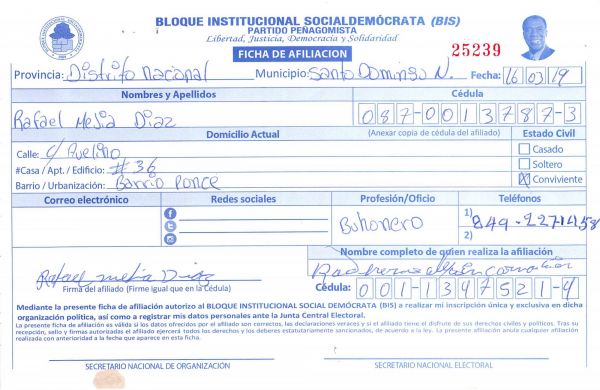 BLOQUE INSTITUCIONAL SOCIALDEMÓCRATA (BIS)
PARTIDO PEÑAGOMISTA
Libertad, Justicia, Democracia y Solidaridad
FICHA DE AFILIACION
25239
Provincia: Distrito Nacional Municipio: Santo Domingo N. Fecha: 16/03/19
Nombres y Apellidos Cédula
Rafael Mejia Diaz 087-0013787-3
Domicilio Actual (Anexar copia de cédula del afiliado) Estado Civil
Calle: C/ Avelino Casado
#Casa / Apt. / Edificio: #36 Soltero
Barrio / Urbanización: Barrio Ponce X Conviviente
Correo electrónico Redes sociales Profesión/Oficio Teléfonos
Buhonero 1) 849-2271458
2)
Nombre completo de quien realiza la afiliación
Rafael Mejia Diaz
Firma del afiliado (Firme igual que en la Cédula) Cédula: 001-1347521-4
Mediante la presente ficha de afiliación autorizo al BLOQUE INSTITUCIONAL SOCIAL DEMÓCRATA (BIS) a realizar mi inscripción única y exclusiva en dicha
organización política, así como a registrar mis datos personales ante la Junta Central Electoral.
La presente ficha de afiliación es válida si los datos ofrecidos por el afiliado son correctos, las declaraciones veraces y si el afiliado tiene el disfrute de sus derechos civiles y políticos. Tras su
recepción, sello y firmas autorizadas el afiliado ejercerá todos los derechos y los deberes estatutariamente sancionados, de acuerdo a la ley. La presente afiliación anula cualquier afiliación
realizada con anterioridad a la fecha que aparece en esta ficha.
SECRETARIO NACIONAL DE ORGANIZACIÓN SECRETARIO NACIONAL ELECTORAL